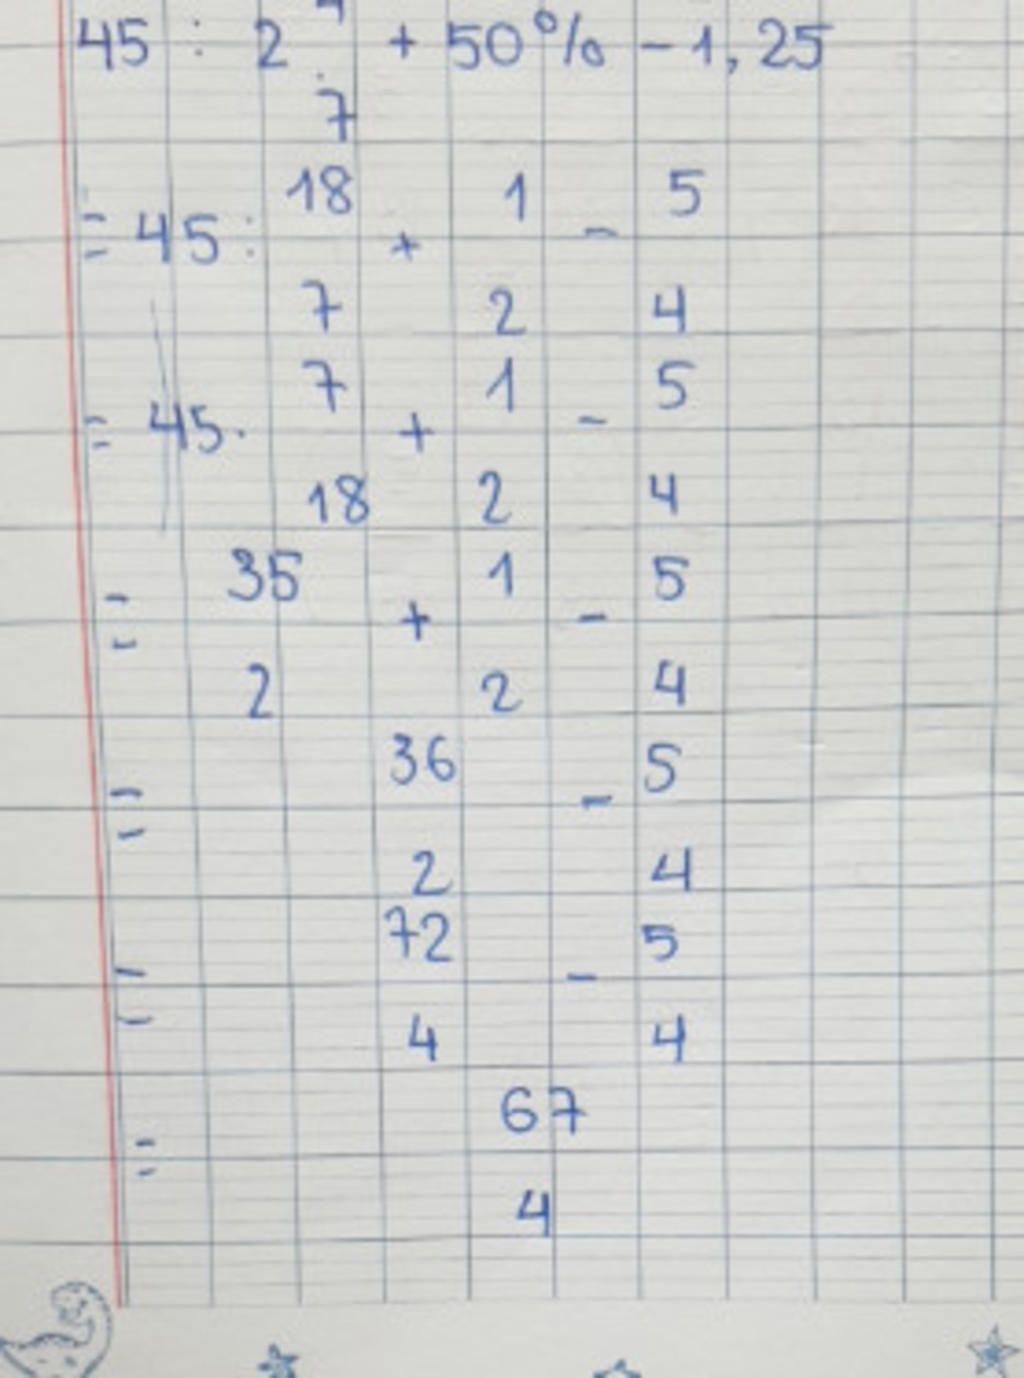 45 : 2 4/7 + 50% - 1,25
= 45 : 18/7 + 1/2 - 5/4
= 45 . 7/18 + 1/2 - 5/4
= 35/2 + 1/2 - 5/4
= 36/2 - 5/4
= 72/4 - 5/4
= 67/4